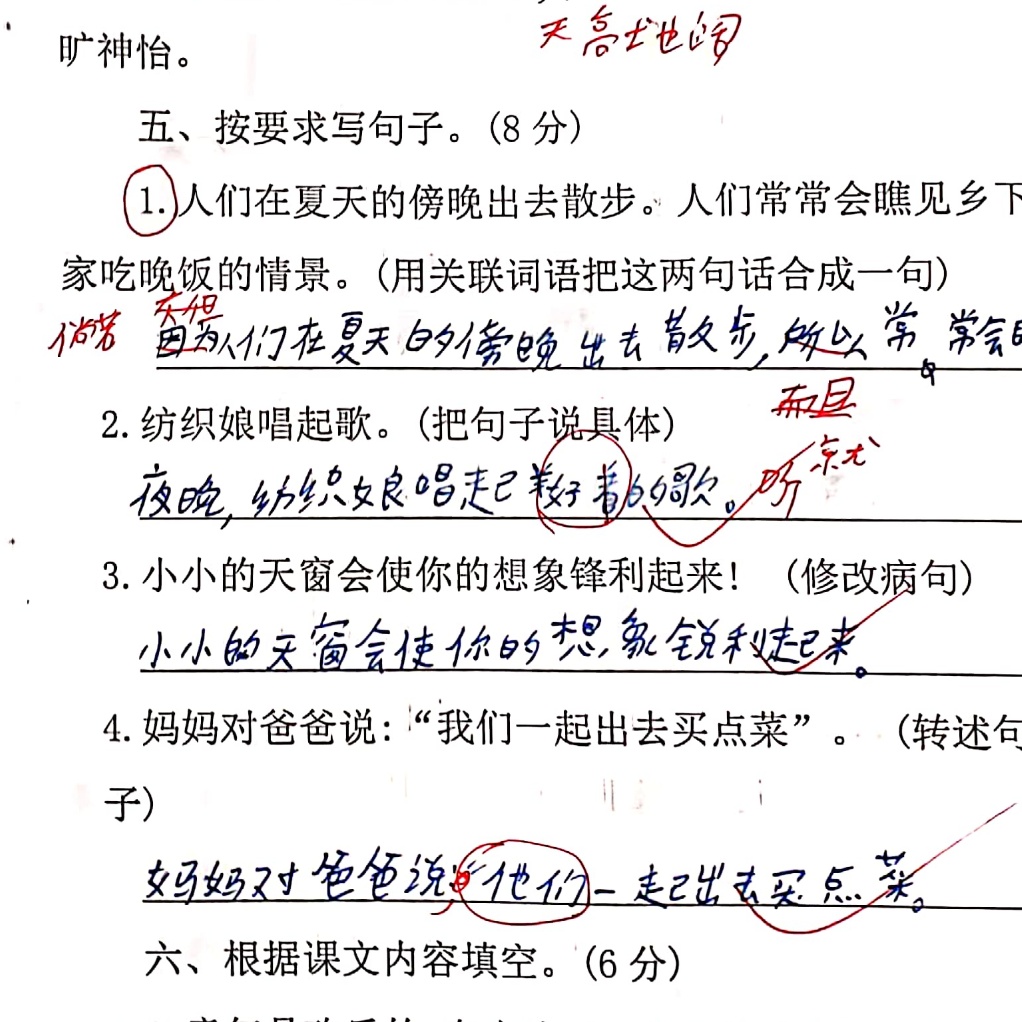 天高地阔
旷神怡。
五、按要求写句子。(8分)
1.人们在夏天的傍晚出去散步。人们常常会瞧见乡下
家吃晚饭的情景。(用关联词语把这两句话合成一句)
倘若 不但
因为人们在夏天的傍晚出去散步,所以常常会
而且
2.纺织娘唱起歌。(把句子说具体)
就
夜晚,纺织娘唱起的歌。听
3.小小的天窗会使你的想象锋利起来! (修改病句)
小小的天窗会使你的想象锐利起来。
4.妈妈对爸爸说:“我们一起出去买点菜”。 (转述句
子)
妈妈对爸爸说,他们一起出去买点菜。
六、根据课文内容填空。(6分)